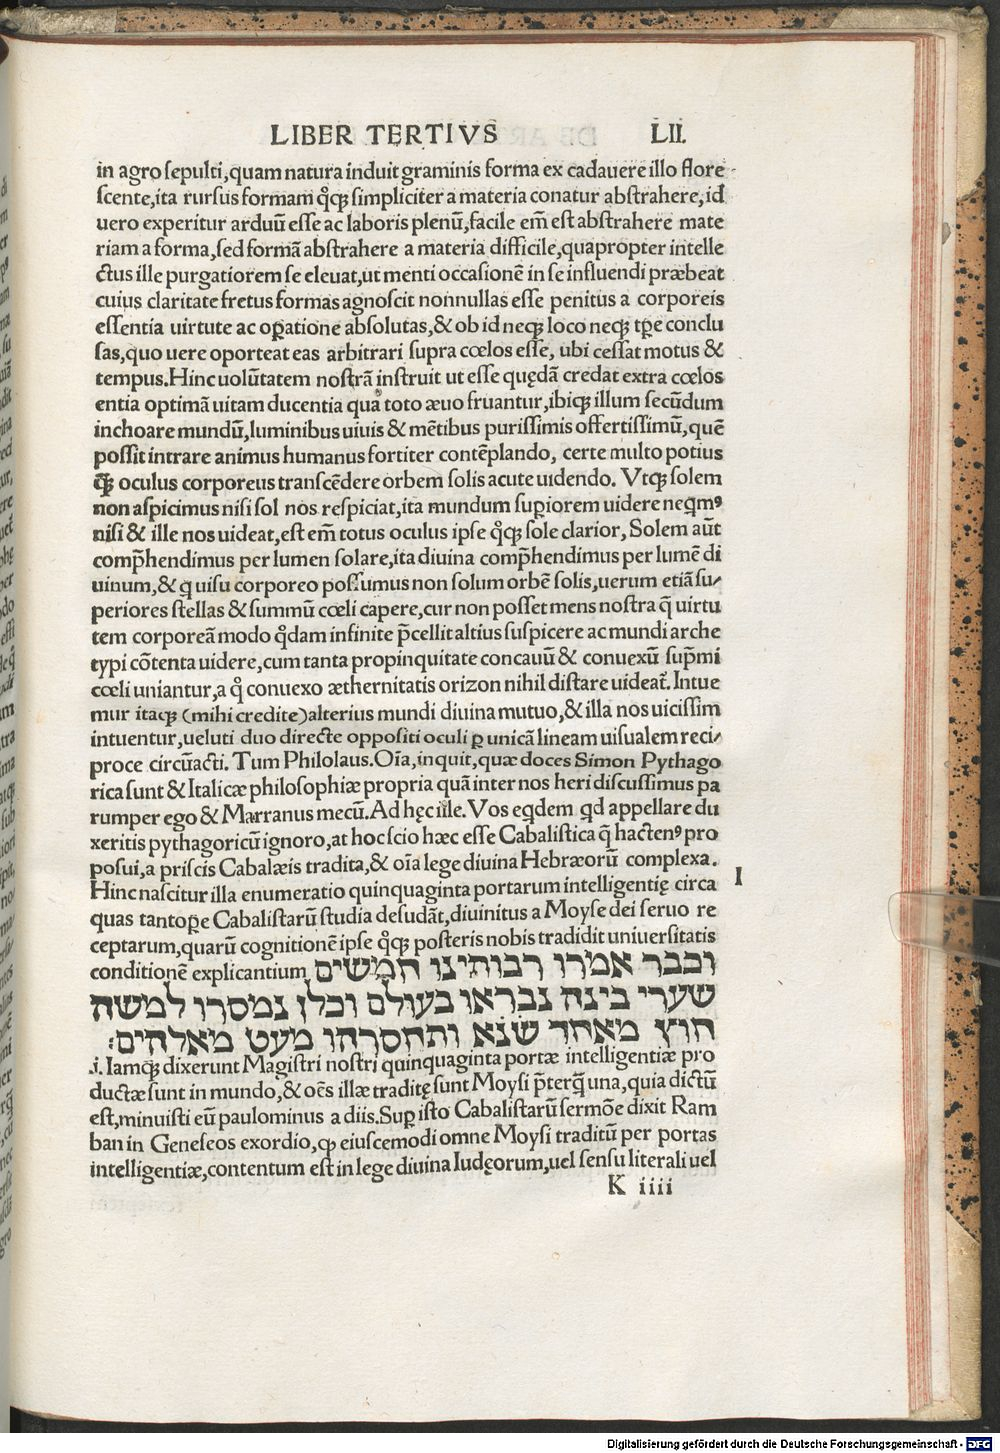 LIBER TERTIVS LII.
in agro sepulti,quam natura induit graminis forma ex cadauere illo flore
scente,ita rursus formam qͥcꝗ simpliciter a materia conatur abstrahere,id
uero experitur arduū esse ac laboris plenū,facile em̄ est abstrahere mate
riam a forma,sed formā abstrahere a materia difficile,quapropter intelle
ctus ille purgatiorem se eleuat,ut menti occasionē in se influendi præbeat
cuius claritate fretus formas agnoscit nonnullas esse penitus a corporeis
essentia uirtute ac oꝑatione absolutas,& ob id neqꝫ loco neqꝫ tp̄e conclu
sas,quo uere oporteat eas arbitrari supra cœlos esse, ubi cessat motus &
tempus.Hinc uolūtatem nostrā instruit ut esse quędā credat extra cœlos
entia optimā uitam ducentia qua toto æuo fruantur,ibiqꝫ illum secūdum
inchoare mundū,luminibus uiuis & mētibus purissimis offertissimū,quē
possit intrare animus humanus fortiter contēplando, certe multo potius
ꝗ̄ oculus corporeus transcēdere orbem solis acute uidendo. Vtqꝫ solem
non aspicimus nisi sol nos respiciat,ita mundum suꝑiorem uidere neqͥmꝰ
nisi & ille nos uideat,est em̄ totus oculus ipse qͥcꝗ sole clarior, Solem aūt
comp̄hendimus per lumen solare,ita diuina comp̄hendimus per lumē di
uinum,& ꝗ uisu corporeo possumus non solum orbē solis,uerum etiā su⸗
periores stellas & summū cœli capere,cur non posset mens nostra q̄ uirtu
tem corporeā modo qͦdam infinite p̄cellit altius suspicere ac mundi arche
typi cōtenta uidere,cum tanta propinquitate concauū & conuexū sup̄mi
cœli uniantur,a qͦ conuexo æthernitatis orizon nihil distare uideat̃. Intue
mur itaqꝫ (mihi credite)alterius mundi diuina mutuo,& illa nos uicissim
intuentur,ueluti duo directe oppositi oculi ꝑ unicā lineam uisualem reci⸗
proce circūacti. Tum Philolaus.Oīa,inquit,quæ doces Simon Pythago
rica sunt & Italicæ philosophiæ propria quā inter nos heri discussimus pa
rumper ego & Marranus mecū.Ad hęc ille.Vos eqͥdem qͥd appellare du
xeritis pythagoricū ignoro,at hoc scio hæc esse Cabalistica q̄ hactenꝰ pro
posui,a priscis Cabalæis tradita,& oīa lege diuina Hebræorū complexa.
Hinc nascitur illa enumeratio quinquaginta portarum intelligentię circa I
quas tantoꝑe Cabalistarū studia desudāt,diuinitus a Moyse dei seruo re
ceptarum,quarū cognitionē ipse qͥcꝗ posteris nobis tradidit uniuersitatis
conditionē explicantium וכבר אמרו רבותינו חמשים
שערי בינה נבראו בעולם וכלן נמסרו למשה
חוץ מאחד שנא ותחסרהו מעט מאלהים:
.i. Iamqꝫ dixerunt Magistri nostri quinquaginta portæ intelligentiæ pro
ductæ sunt in mundo,& oēs illæ traditę sunt Moysi p̄terꝗ̄ una,quia dictū
est,minuisti eū paulominus a diis.Suꝑ isto Cabalistarū sermōe dixit Ram
ban in Geneseos exordio,ꝙ eiuscemodi omne Moysi traditū per portas
intelligentiæ,contentum est in lege diuina Iudęorum,uel sensu literali uel
K iiii
Digitalisierung gefördert durch die Deutsche Forschungsgemeinschaft - DFG